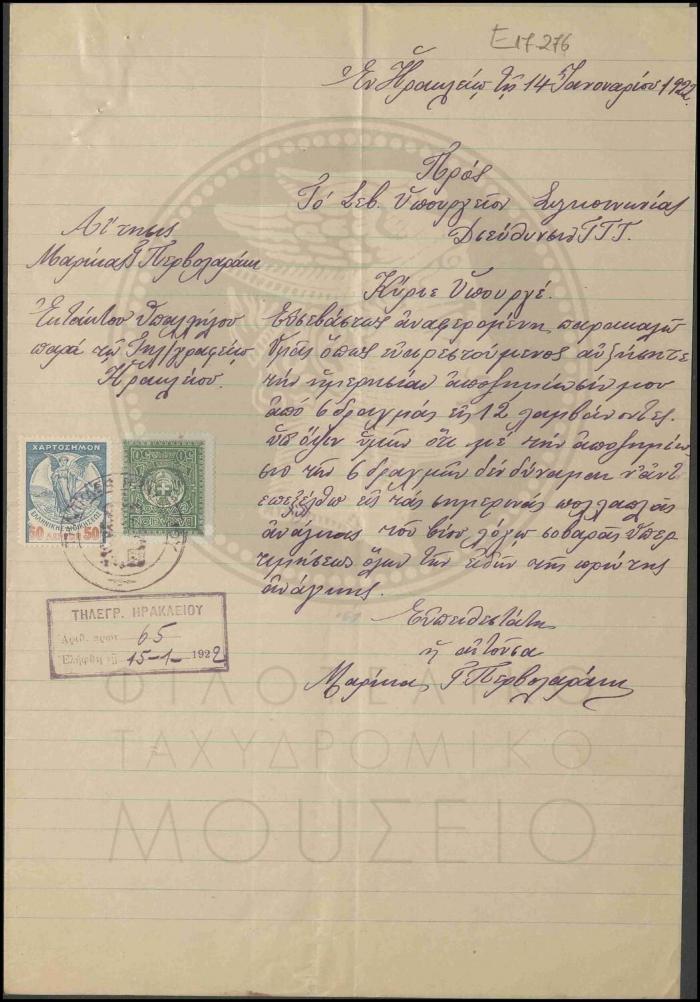 E17.276
Ἐν Ἡρακλείῳ τῇ 14 Ἰανουαρίου 1922
Πρός
Τό Σεβ. Ὑπουργεῖον Συγκοινωνίας
Διεύθυνσιν ΤΤΤ.
Αἴτησις
Μαρίκας Γ Περβολαράκη
Ἐκτάκτου Ὑπαλλήλου
παρά τῷ Τηλ/γραφείῳ
Ἡρακλείου.
Κύριε Ὑπουργέ.
Εὐσεβάστως ἀναφερομένη παρακαλῶ
Ὑμᾶς ὅπως εὐαρεστούμενος αὐξήσητε
τήν ἡμερησίαν ἀποζημίωσίν μου
ἀπό 6 δραχμάς εἰς 12 λαμβάνοντες
ὑπ' ὄψιν ὑμῶν ὅτι μέ τήν ἀποζημίω
σιν τῶν 6 δραχμῶν δέν δύναμαι ν' ἀντ
επεξέλθω εἰς τάς σημερινάς πολλαπλᾶς
ἀνάγκας τοῦ βίου λόγῳ σοβαρᾶς ὑπερ
τιμήσεως ὅλων τῶν εἰδῶν τῆς πρώτης
ἀνάγκης.
Εὐπειθεστάτη
ἡ αἰτοῦσα
Μαρίκα Γ Περβολαράκη
ΧΑΡΤΟΣΗΜΟΝ
ΕΛΛΗΝΙΚΗΣ ΔΙΟΙΚΗΣΕΩΣ
50 ΛΕΠΤΑ 50
ΤΗΛΕΓΡ. ΗΡΑΚΛΕΙΟΥ
Αριθ. πρωτ. 65
Ελήφθη τῇ 15-1- 1922
ΦΙΛΟΤΕΛΙΚΟ
ΤΑΧΥΔΡΟΜΙΚΟ
ΜΟΥΣΕΙΟ